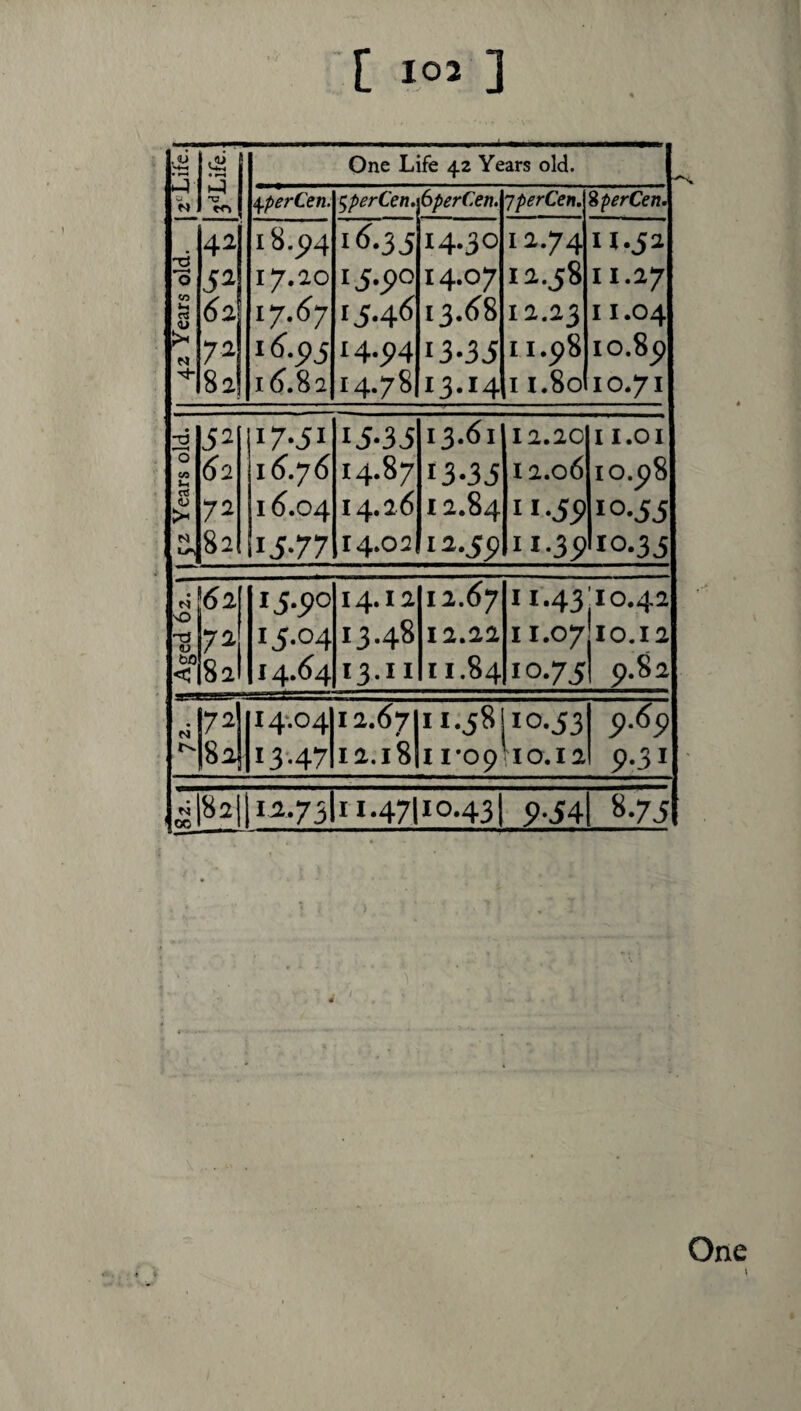 [ 102 ]
2d Life. 3d Life. One Life 42 Years old.
4perCen. 5perCen. 6perCen. 7perCen. 8perCen.
42 Years old.
42 18.94 16.35 14.30 12.74 11.52
52 17.20 15.90 14.07 12.58 11.27
62 17.67 15.46 13.68 12.23 11.04
72 16.95 14.94 13.35 11.98 10.89
82 16.82 14.78 13.14 11.80 10.71
52 Years old.
52 17.51 15.35 13.61 12.20 11.01
62 16.76 14.87 13.35 12.06 10.98
72 16.04 14.26 12.84 11.59 10.55
82 15.77 14.02 12.59 11.39 10.35
Aged 62.
62 15.90 14.12 12.67 11.43 10.42
72 15.04 13.48 12.22 11.07 10.12
82 14.64 13.11 11.84 10.75 9.82
72.
72 14.04 12.67 11.58 10.53 9.69
82 13.47 12.18 11·09 10.12 9.31
82. 82 12.73 11.47 10.43 9.54 8.75
One